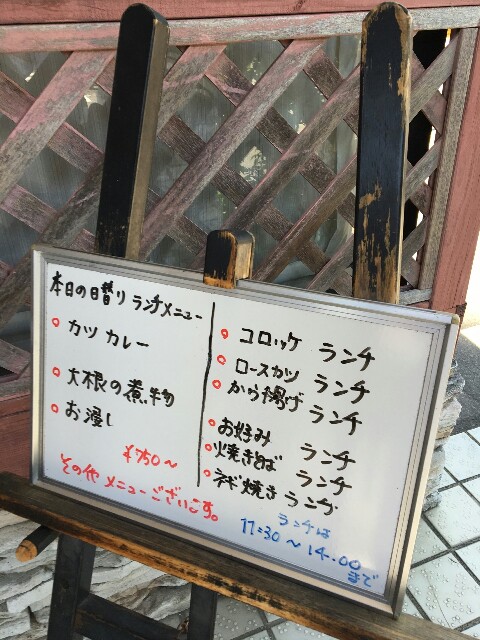 本日の日替りランチメニュー
カツカレー
大根の煮物
お浸し
¥750〜
その他メニューございます。
コロッケ ランチ
ロースカツ ランチ
から揚げ ランチ
お好み ランチ
焼きそば ランチ
ネギ焼き ランチ
ランチは
11:30〜14:00
まで